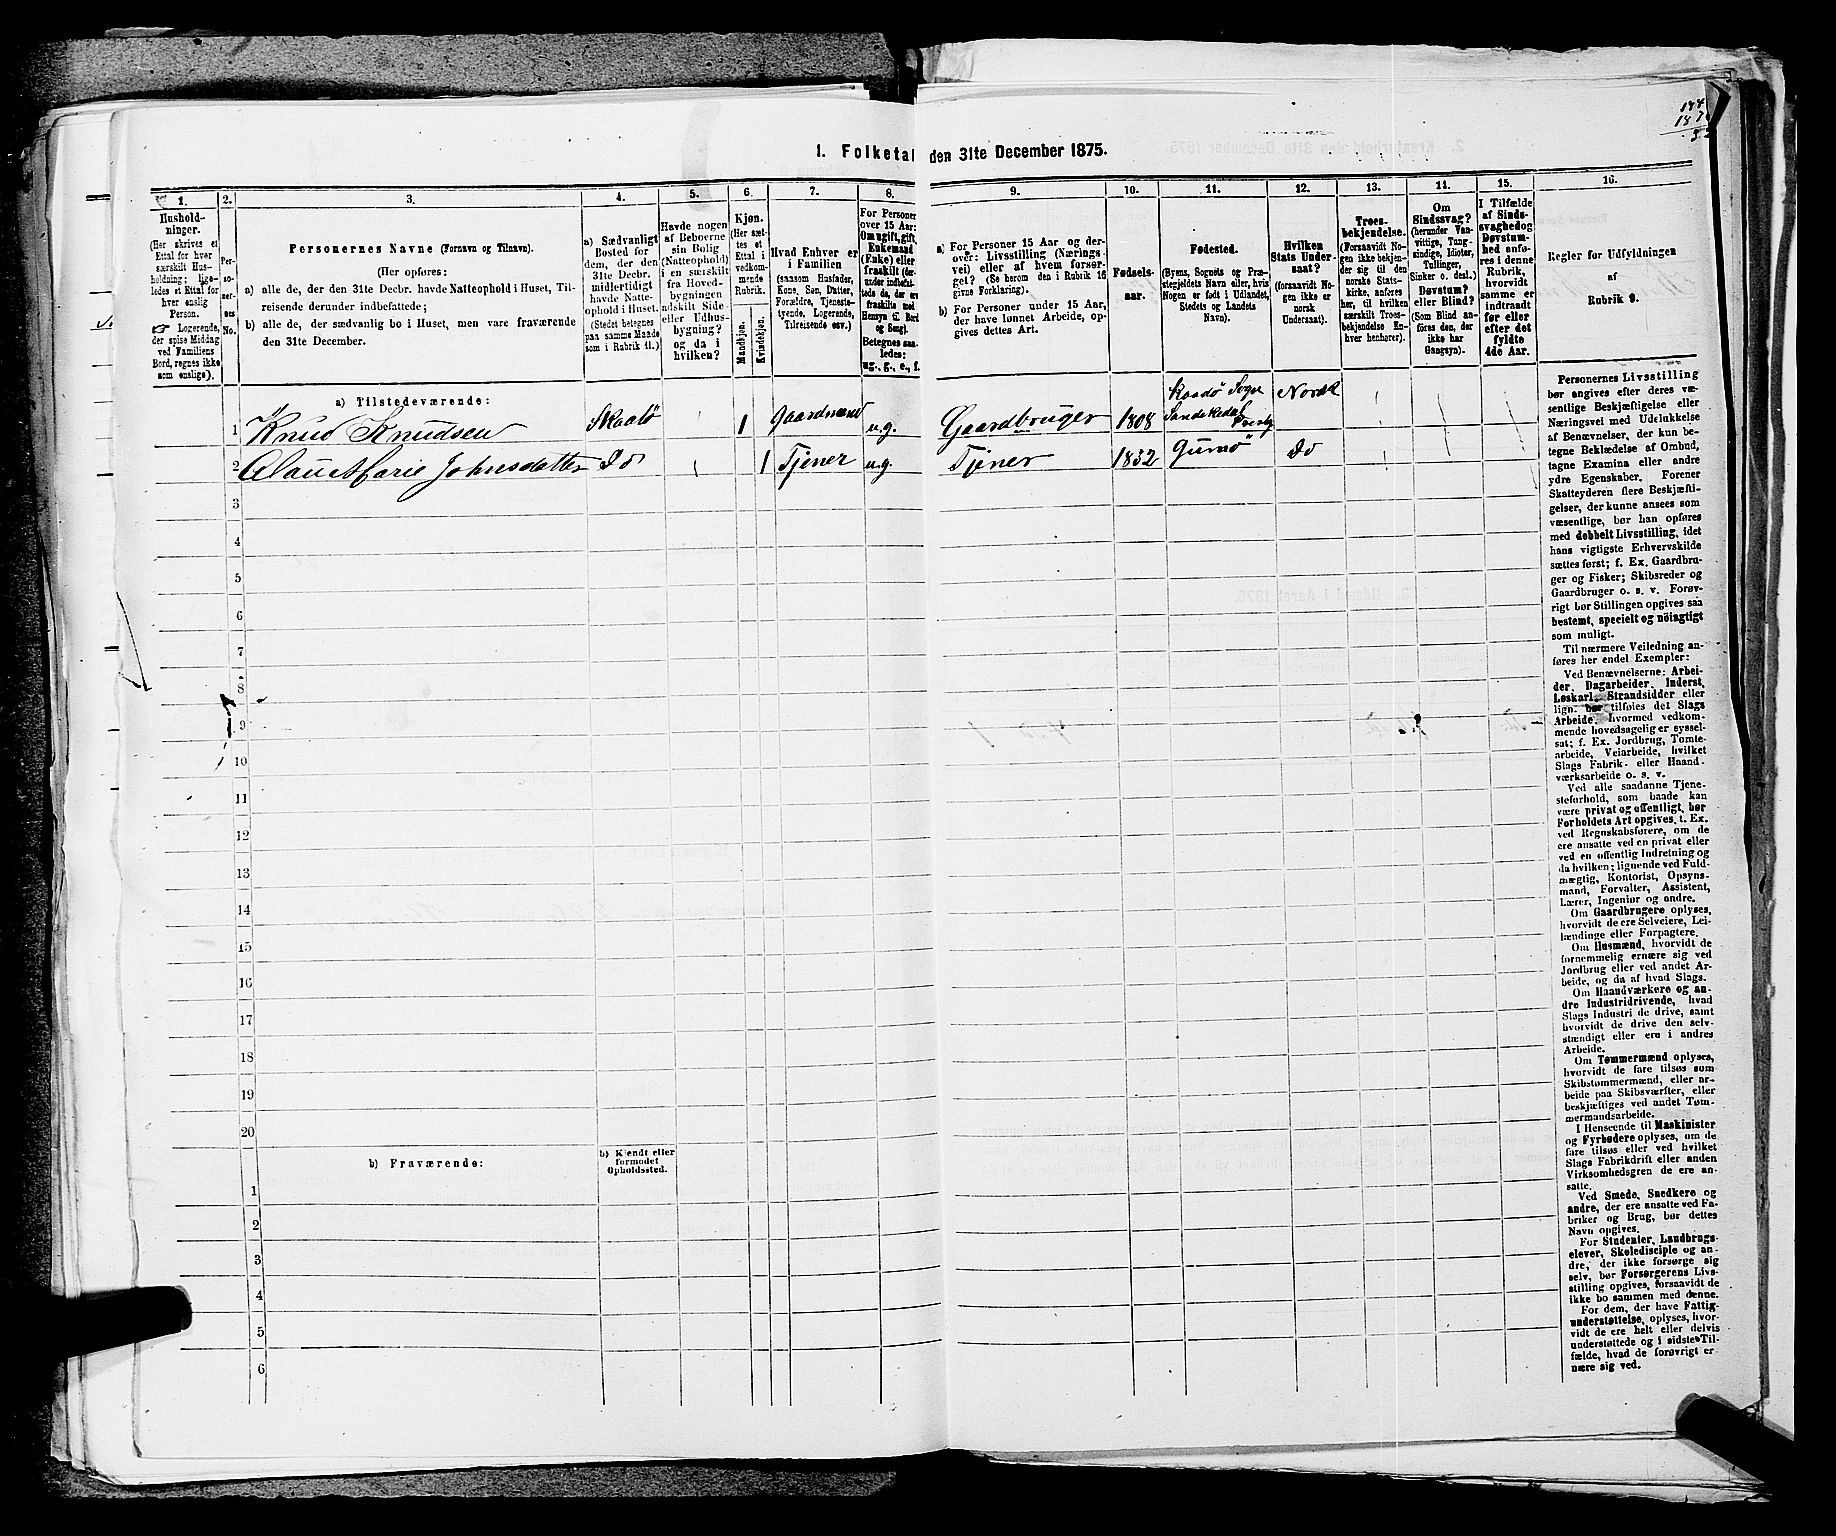 1. Folketal den 31te December 1875.
1.
Hushold-
ninger.
(Her skrives et
Ettal for hver
særskilt Hus-
holdning; lige-
ledes et Ettal for
hver enslig
Person.
☞ Logerende,
der spise Middag
ved Familiens
Bord, regnes ikke
som enslige).
2.
Per-
so-
ner-
nes
No.
3.
Personernes Navne (Fornavn og Tilnavn).
(Her opføres:
a) alle de, der den 31te Decbr. havde Natteophold i Huset, Til-
reisende derunder indbefattede;
b) alle de, der sædvanlig bo i Huset, men vare fraværende
den 31te December.
4.
a) Sædvanligt
Bosted for
dem, der den
31te Decbr.
midlertidigt
havde Natte-
ophold i Huset.
(Stedet betegnes
paa samme Maade
som i Rubrik 11.)
5.
Havde nogen
af Beboerne
sin Bolig
(Natteophold)
i en særskilt
fra Hoved-
bygningen
adskilt Side-
eller Udhus-
bygning?
og da i
hvilken?
6.
Kjøn.
(Her sæt-
tes et
Ettal i
vedkom-
mende
Rubrik.
Mandkjøn.
Kvindekjøn.
7.
Hvad Enhver er
i Familien
(saasom Husfader,
Kone, Søn, Datter,
Forældre, Tjeneste-
tyende, Logerende,
Tilreisende osv.)
8.
For Personer
over 15 Aar:
Om ugift, gift,
Enkemand
(Enke) eller
fraskilt
Betegnes saa-
ledes:
ug., g., e., f.
9.
a) For Personer 15 Aar og der-
over: Livsstilling (Nærings-
vei) eller af hvem forsør-
get? (Se herom den i Rubrik 16
givne Forklaring).
b) For Personer under 15 Aar,
der have lønnet Arbeide, op-
gives dettes Art.
10.
Fødsels-
aar.
11.
Fødested.
(Byens, Sognets og Præ-
stegjeldets Navn eller, hvis
Nogen er født i Udlandet,
Stedets og Landets
Navn).
12.
Hvilken
Stats Under-
saat?
(foransaavidt No-
gen ikke er
norsk
Undersaat).
13.
Troes-
bekjendelse.
(Forsaavidt No-
gen ikke bekjen-
der sig til den
norske Stats-
kirke, anføres
her, til hvilken
særskilt Troes-
bekjendelse En-
hver henhører).
14.
Om
Sindssvag?
(herunder Van-
vittige, Tung-
sindige, Idioter,
Tullinger,
Sinker o. desl.)
Døvstum?
eller Blind?
(Som Blind an-
føres den, der
ikke har
Gangsyn).
15.
I Tilfælde
af Sinds-
svaghed og
Døvstum-
hed anfø-
res i denne
Rubrik,
hvorvidt
samme er
indtraadt
før eller
efter det
fyldte
4de Aar.
16.
Regler for Udfyldningen
af
Rubrik 9.
a) Tilstedeværende:
1 Knud Knudsen Skaatø 1 Gaardmand u.g. Gaardbruger 1808 Sogn Norsk
2 Marie Johnsdatter Do 1 Tjener u.g. Tjener 1832 Do
3
4
5
6
7
8
9
10
11
12
13
14
15
16
17
18
19
20
b) Fraværende:
b) Kjendt eller
formodet
Opholdssted.
1
2
3
4
5
6
Personernes Livsstilling
bør angives efter deres væ-
sentlige Beskjæftigelse eller
Næringsvei med Udelukkelse
af Benævnelser, der kun be-
tegne Beklædelse af Ombud,
tagne Examina eller andre
ydre Egenskaber. Forener
Skatteyderen flere Beskjæfti-
gelser, der kunne ansees som
væsentlige, bør han opføres
med dobbelt Livsstilling, idet
hans vigtigste Erhvervskilde
sættes først; f. Ex. Gaardbru-
ger og Fisker; Skibsreder og
Gaardbruger o. s. v. Forøv-
rigt bør Stillingen opgives saa
bestemt, specielt og nøiagtigt
som muligt.
Til nærmere Veiledning an-
føres her endel Exempler:
Ved Benævnelserne: Arbei-
der, Dagarbeider, Inderst,
Løskarl, Strandsidder eller
lign. bør tilføies det Slags
Arbeide, hvormed vedkom-
mende hovedsagelig er syssel-
sat; f. Ex. Jordbrug, Tomte-
arbeide, Veiarbeide, hvilket
Slags Fabrik- eller Haand-
værksarbeide o. s. v.
Ved alle saadanne Tjene-
steforhold, som baade kan
være privat og offentligt, bør
Forholdets Art opgives, t. Ex.
ved Regnskabsførere, om de
ere ansatte ved en privat eller
ved en offentlig Indretning og
da hvilken; lignende ved Fuld-
mægtig, Kontorist, Opsyns-
mand, Forvalter, Assistent,
Lærer, Ingeniør og andre.
Om Gaardbrugere oplyses,
hvorvidt de ere Selveiere, Lei-
lændinge eller Forpagtere.
Om Husmænd, hvorvidt de
fornemmelig ernære sig ved
Jordbrug eller ved andet Ar-
beide, og da af hvad Slags.
Om Haandværkere og an-
dre Industridrivende, hvad
Slags Industri de drive, samt
hvorvidt de drive den selv-
stændigt eller ere i andres
Arbeide.
Om Tømmermænd oplyses,
hvorvidt de fare tilsøs som
Skibstømmermænd, eller ar-
beide paa Skibsværfter, eller
beskjæftiges ved andet Tøm-
mermandsarbeide.
I Henseende til Maskinister
og Fyrbødere oplyses, om de
fare tilsøs eller ved hvilket
Slags Fabrikdrift eller anden
Virksomhedsgren de ere an-
satte.
Ved Smede, Snedkere og
andre, der ere ansatte ved Fa-
briker og Brug, bør dettes
Navn opgives.
For Studenter, Landbrugs-
elever, Skoledisciple og an-
dre, der ikke forsørge sig
selv, bør Forsørgerens Livs-
stilling opgives, forsaavidt de
ikke bo sammen med denne.
For dem, der have Fattig-
understøttelse, oplyses, hvor-
vidt de ere helt eller delvis
understøttede og i sidste Til-
fælde, hvad de forøvrigt er-
nære sig ved.